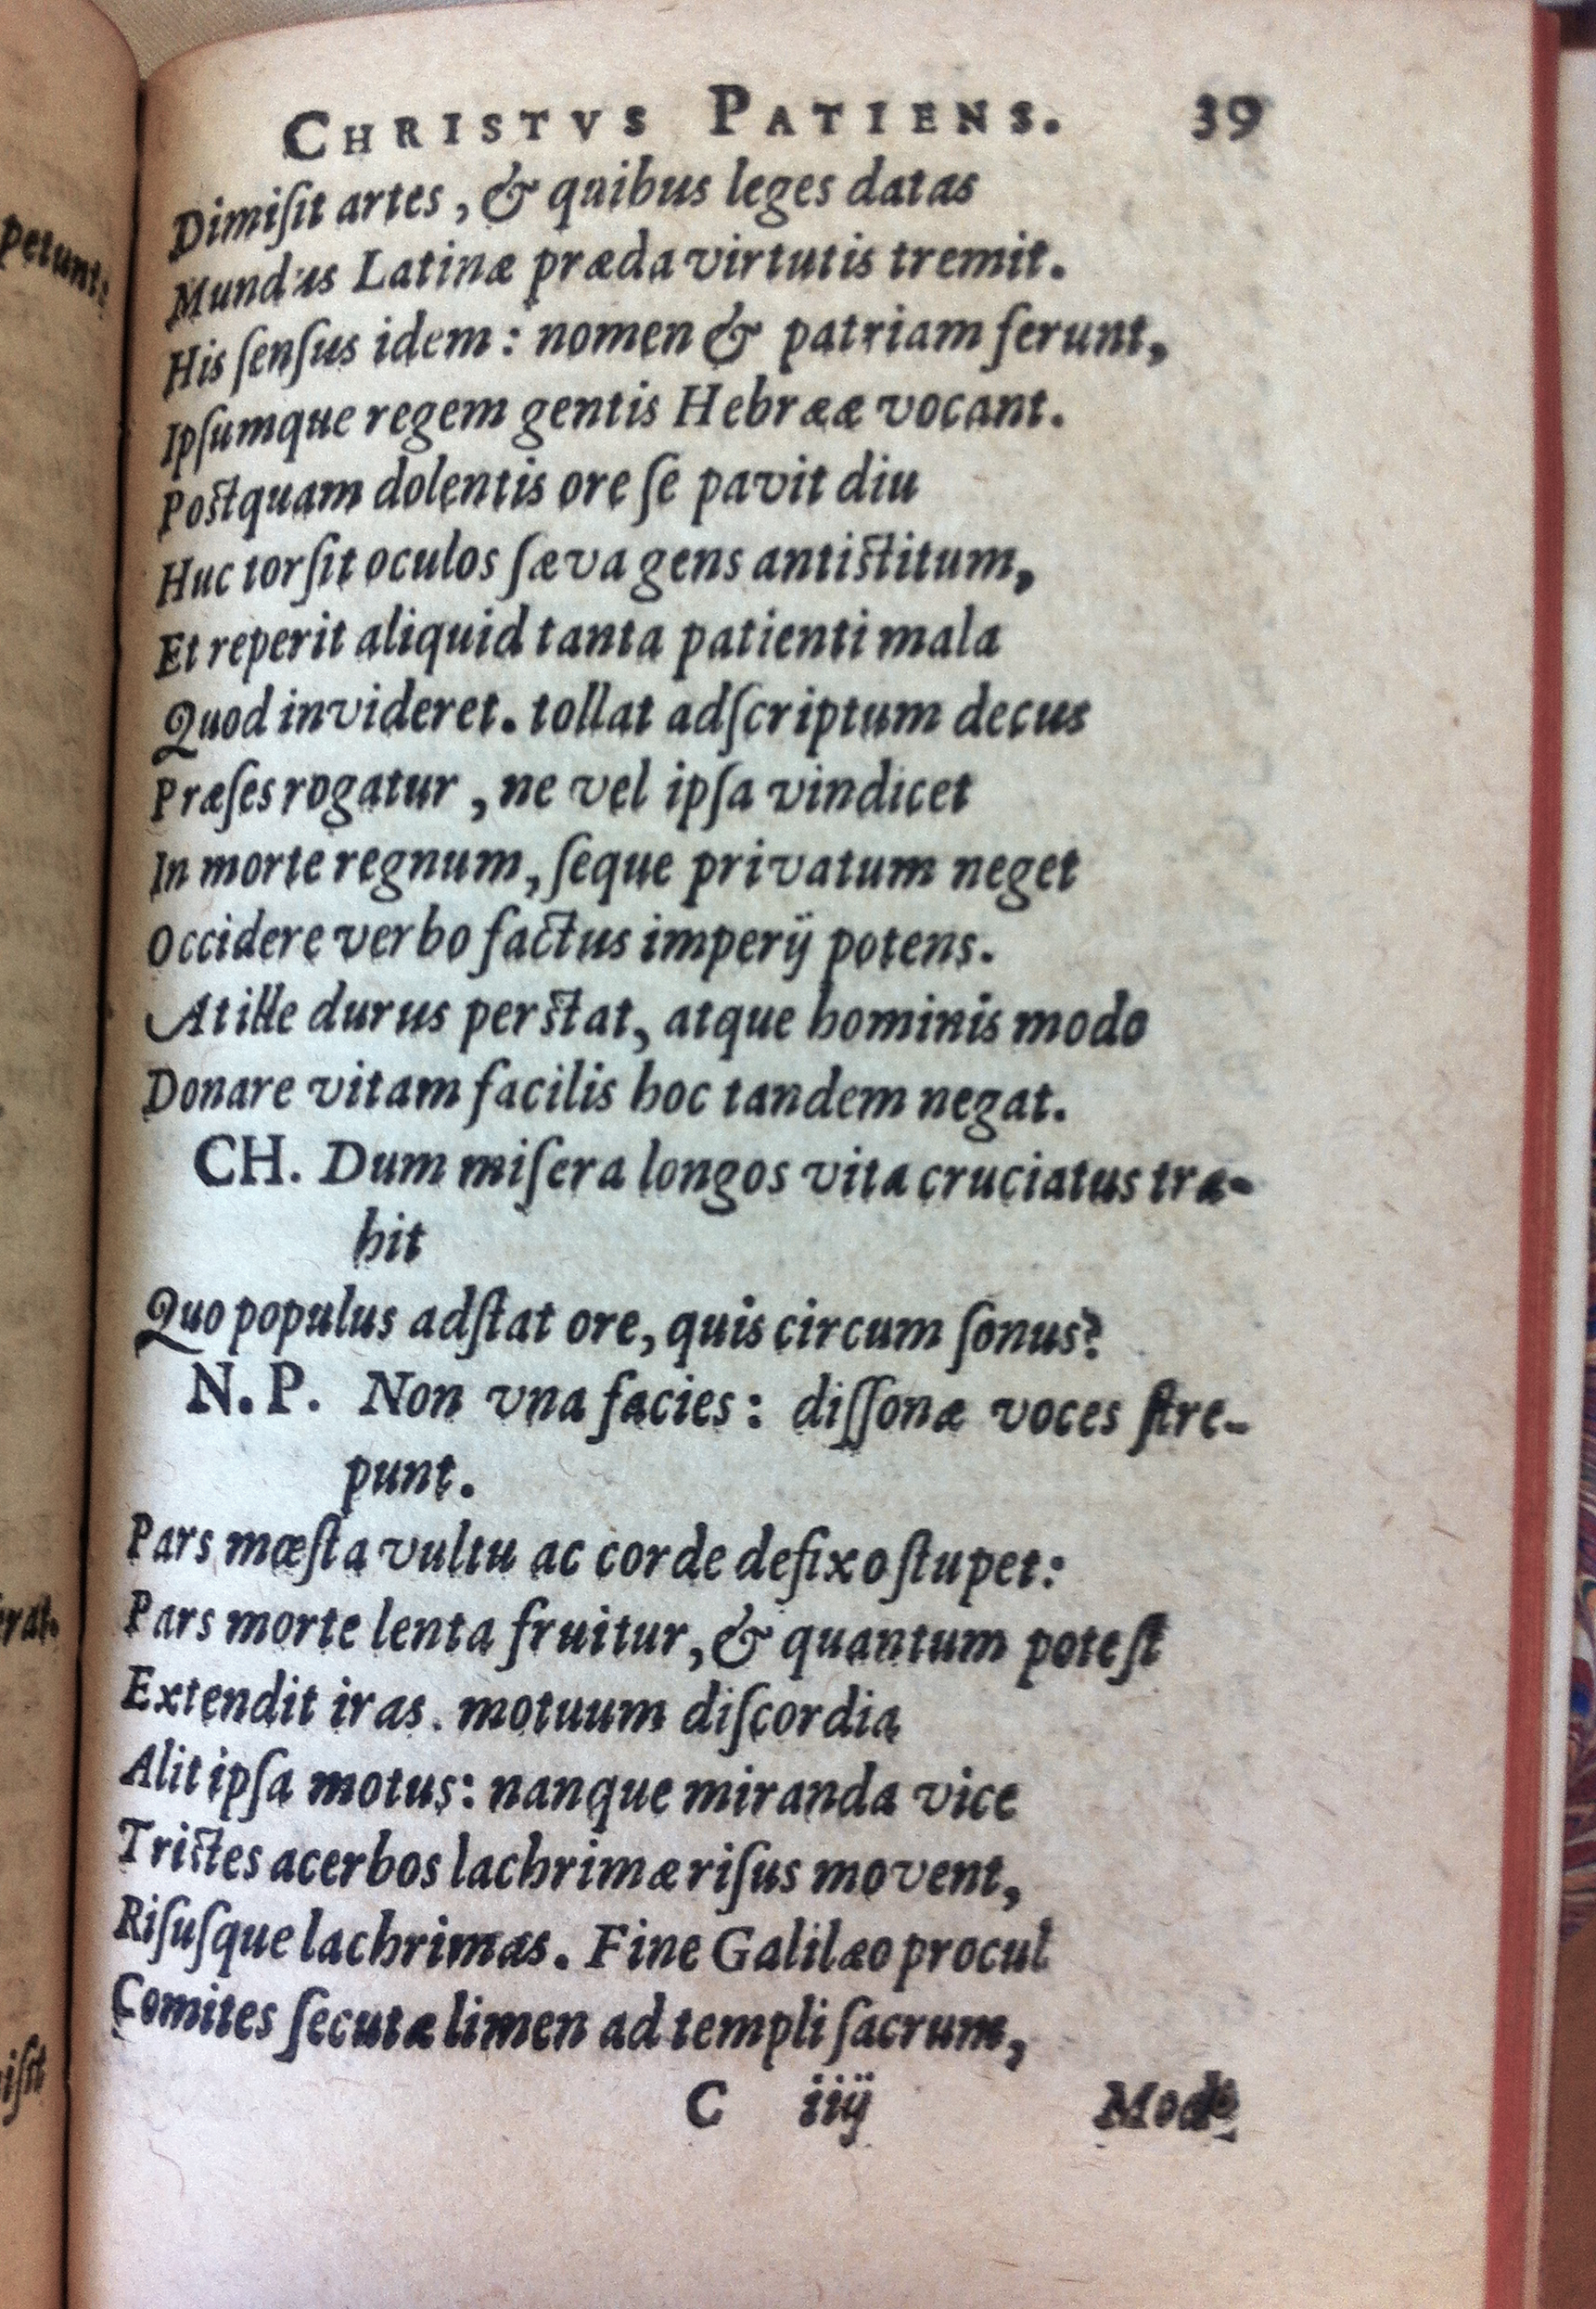 CHRISTVS PATIENS. 39
Dimiſit artes, & quibus leges datas
Mundus Latinæ præda virtutis tremit.
His ſenſus idem: nomen & patriam ferunt,
Ipſumque regem gentis Hebrææ vocant.
Poſtquam dolentis ore ſe pavit diu
Huc torſit oculos ſæva gens antiſtitum,
Et reperit aliquid tanta patienti mala
Quod invideret. tollat adſcriptum decus
Præſes rogatur, ne vel ipſa vindicet
In morte regnum, ſeque privatum neget
Occidere verbo factus imperij potens.
At ille durus perſtat, atque hominis modo
Donare vitam facilis hoc tandem negat.
CH. Dum miſera longos vita cruciatus tra-
hit
Quo populus adſtat ore, quis circum ſonus?
N.P. Non vna facies: diſſonæ voces ſtre-
punt.
Pars mæſta vultu ac corde defixo ſtupet:
Pars morte lenta fruitur, & quantum poteſt
Extendit iras. motuum diſcordia
Alit ipſa motus: nanque miranda vice
Triſtes acerbos lachrimæ riſus movent,
Riſuſque lachrimas. Fine Galilæo procul
Comites ſecutæ limen ad templi ſacrum,
C iiij
petunt